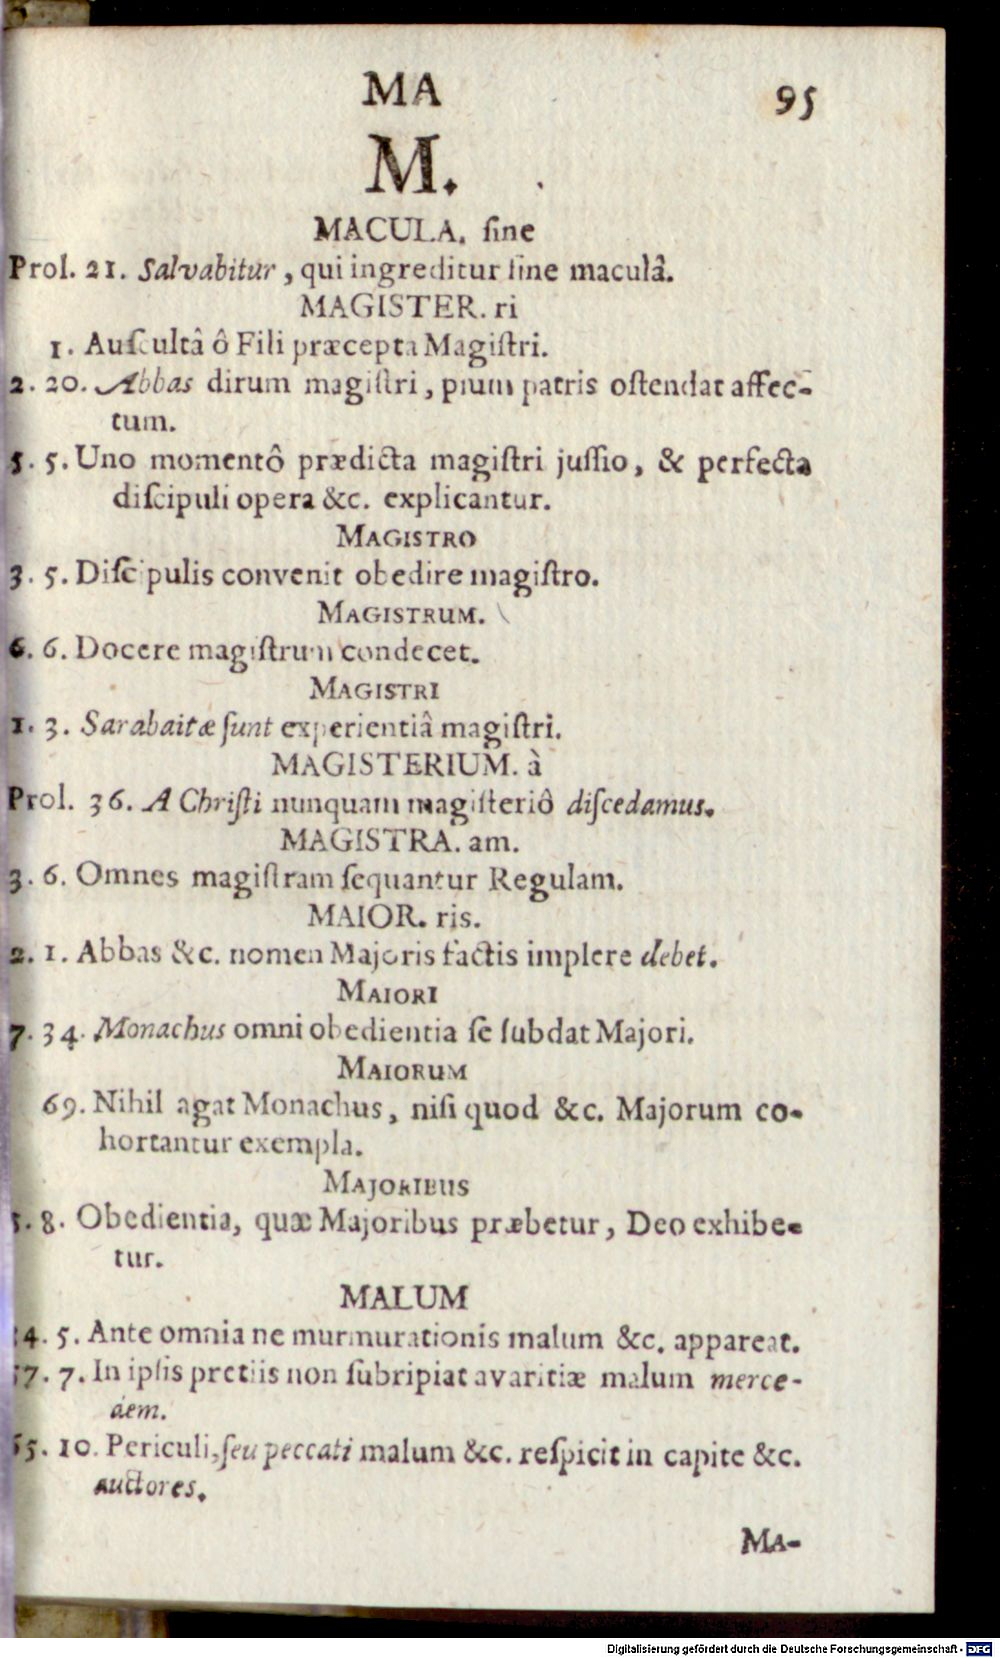 MA 95
M.
MACULA. ſine
Prol. 21. Salvabitur, qui ingreditur ſine maculâ.
MAGISTER. ri
1. Auſcultâ ô Fili præcepta Magiſtri.
2. 20. Abbas dirum magiſtri, pium patris oſtendat affec-
tum.
5. 5. Uno momentô prædicta magiſtri juſſio, & perfecta
diſcipuli opera &c. explicantur.
MAGISTRO
3. 5. Diſcipulis convenit obedire magiſtro.
MAGISTRUM.
6. 6. Docere magiſtrum condecet.
MAGISTRI
1. 3. Sarabaitæ ſunt experientiâ magiſtri.
MAGISTERIUM. à
Prol. 36. A Chriſti nunquam magiſteriô diſcedamus.
MAGISTRA. am.
3. 6. Omnes magiſtram ſequantur Regulam.
MAIOR. ris.
2. 1. Abbas &c. nomen Majoris factis implere debet.
MAIORI
7. 34. Monachus omni obedientia ſe ſubdat Majori.
MAIORUM
69. Nihil agat Monachus, niſi quod &c. Majorum co-
hortantur exempla.
MAJORIBUS
5. 8. Obedientia, quæ Majoribus præbetur, Deo exhibe-
tur.
MALUM
34. 5. Ante omnia ne murmurationis malum &c. appareat.
57. 7. In ipſis pretiis non ſubripiat avaritiæ malum merce-
dem.
65. 10. Periculi, ſeu peccati malum &c. reſpicit in capite &c.
auctores.
MA-
Digitalisierung gefördert durch die Deutsche Forschungsgemeinschaft - DFG